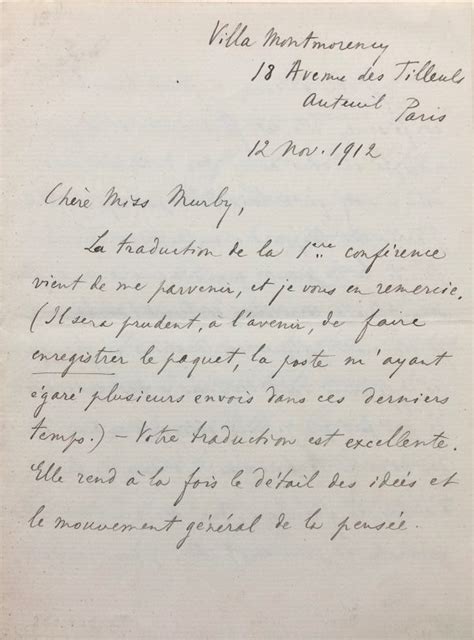 Villa Montmorency
18 Avenue des Tilleuls
Auteuil Paris
12 Nov. 1912
Chère Miss Murby,
La traduction de la 1ère conférence
vient de me parvenir, et je vous en remercie.
(Il sera prudent, à l'avenir, de faire
enregistrer le paquet, la poste m'ayant
égaré plusieurs envois dans ces derniers
temps.) – Votre traduction est excellente.
Elle rend à la fois le détail des idées et
le mouvement général de la pensée.